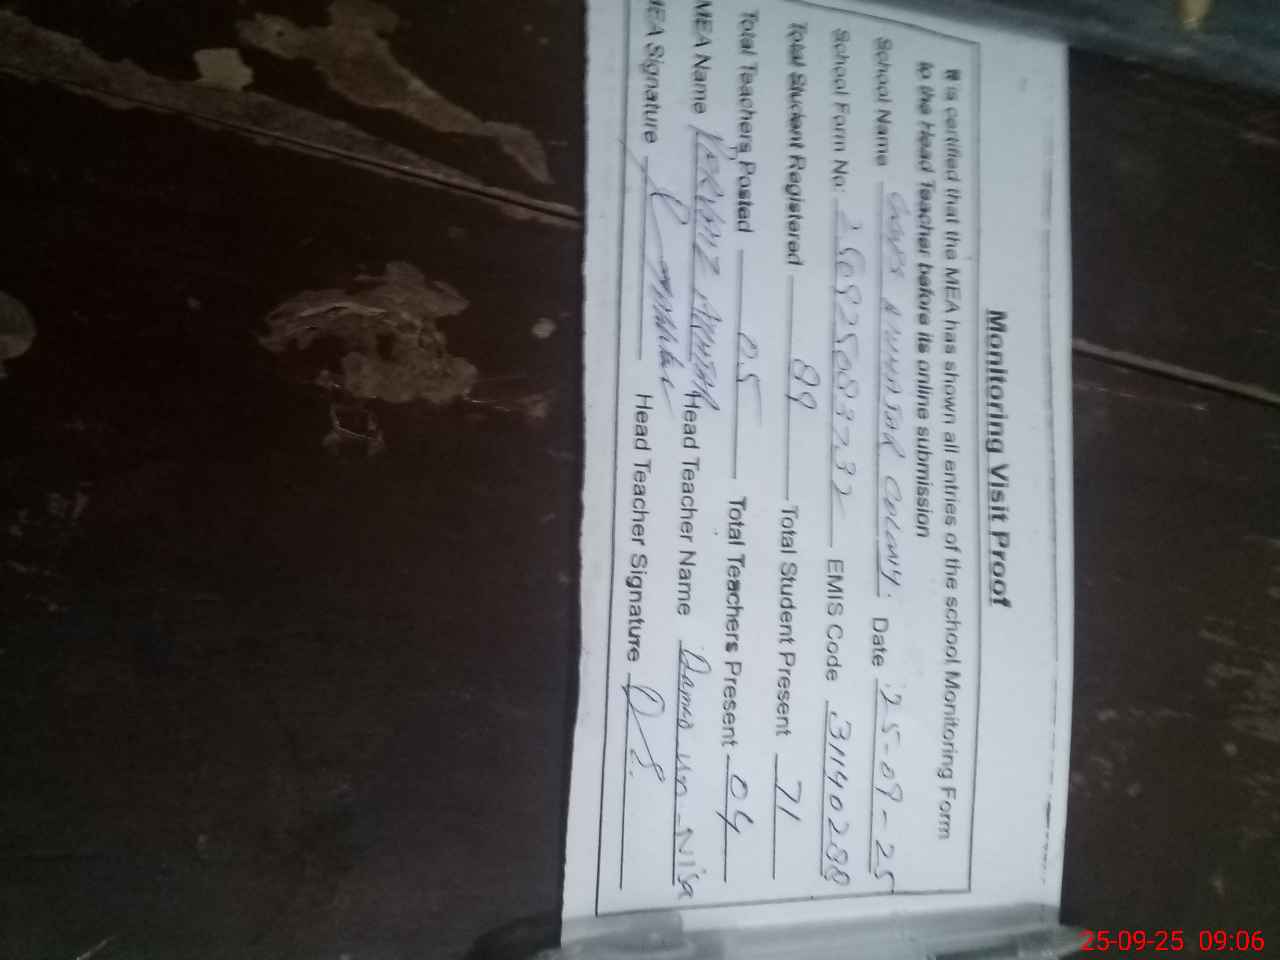 Monitoring Visit Proof
It is certified that the MEA has shown all entries of the school Monitoring Form
to the Head Teacher before its online submission
School Name COLONY. Date 25-09-25
School Form No: 250925083732 EMIS Code 31140288
Total Student Registered 89 Total Student Present 71
Total Teachers Posted 05 Total Teachers Present 04
MEA Name PERVAIZ AKHTAR Head Teacher Name Qamar un-Nisa
MEA Signature Head Teacher Signature
25-09-25 09:06